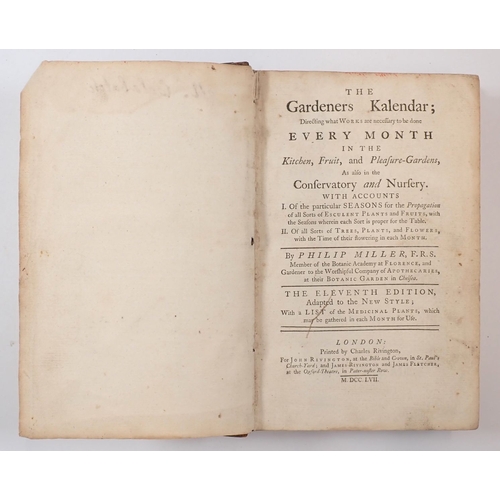 THE
Gardeners Kalendar;
Directing what WORKS are necessary to be done
EVERY MONTH
IN THE
Kitchen, Fruit, and Pleasure-Gardens,
As also in the
Conservatory and Nursery.
WITH ACCOUNTS
I. Of the particular SEASONS for the Propagation
of all Sorts of ESCULENT PLANTS and FRUITS, with
the Seasons wherein each Sort is proper for the Table.
II. Of all Sorts of TREES, PLANTS, and FLOWERS,
with the Time of their flowering in each MONTH.
By PHILIP MILLER, F.R.S.
Member of the Botanic Academy at FLORENCE, and
Gardener to the Worshipful Company of APOTHECARIES,
at their BOTANIC GARDEN in Chelsea.
THE ELEVENTH EDITION,
Adapted to the NEW STYLE;
With a LIST of the MEDICINAL PLANTS, which
may be gathered in each MONTH for Use.
LONDON:
Printed by Charles Rivington,
For JOHN RIVINGTON, at the Bible and Crown, in St. Paul's
Church-Yard; and JAMES RIVINGTON and JAMES FLETCHER,
at the Oxford-Theatre, in Pater-noster Row.
M.DCC.LVII.